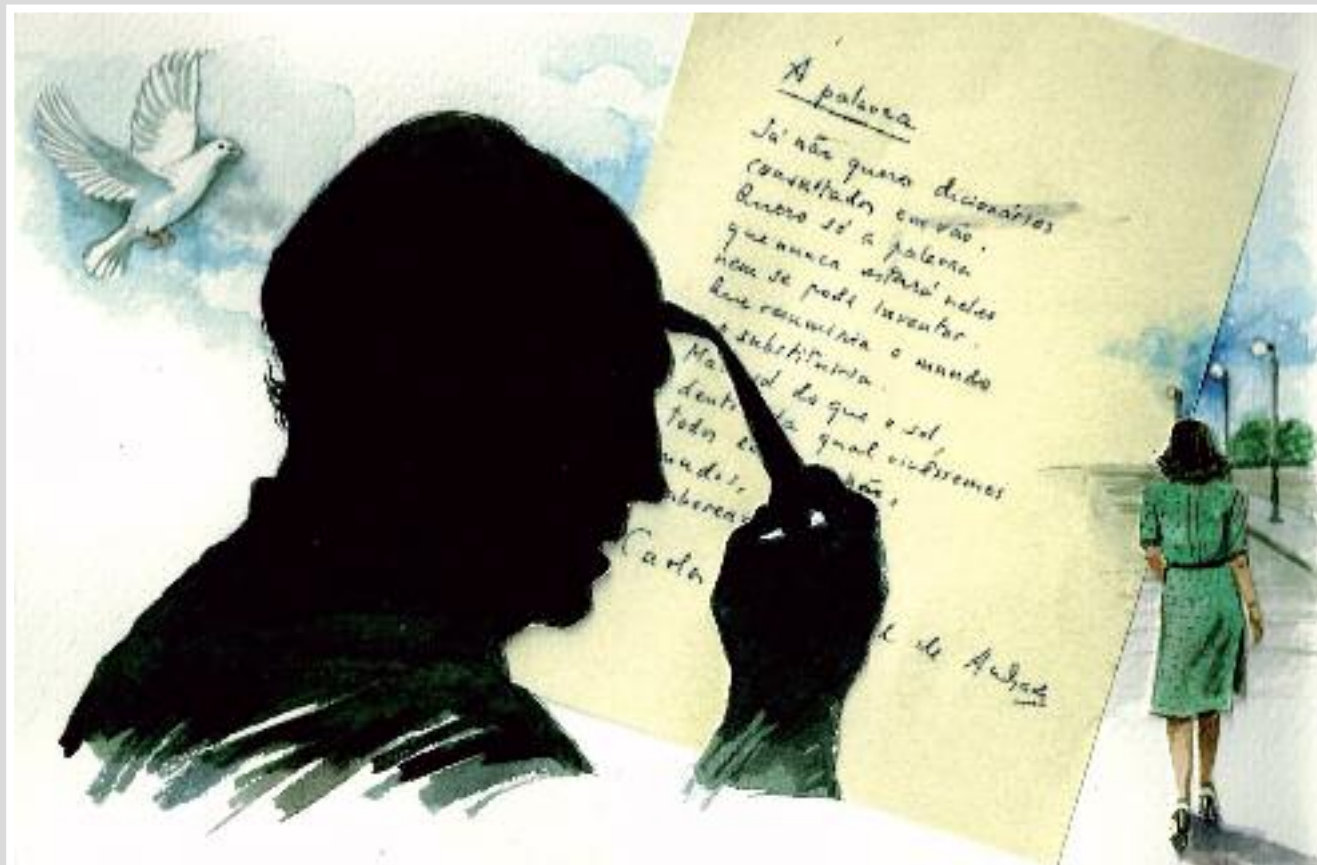 A palavra
Já não quero dicionários
consultados em vão.
Quero só a palavra
que nunca estará neles
nem se pode inventar.
Que resumiria o mundo
e o substituiria.
Ma sol do que o sol,
dent da qual vivêssemos
todos em
mudos,
saboreando
Carlos
de Andrade